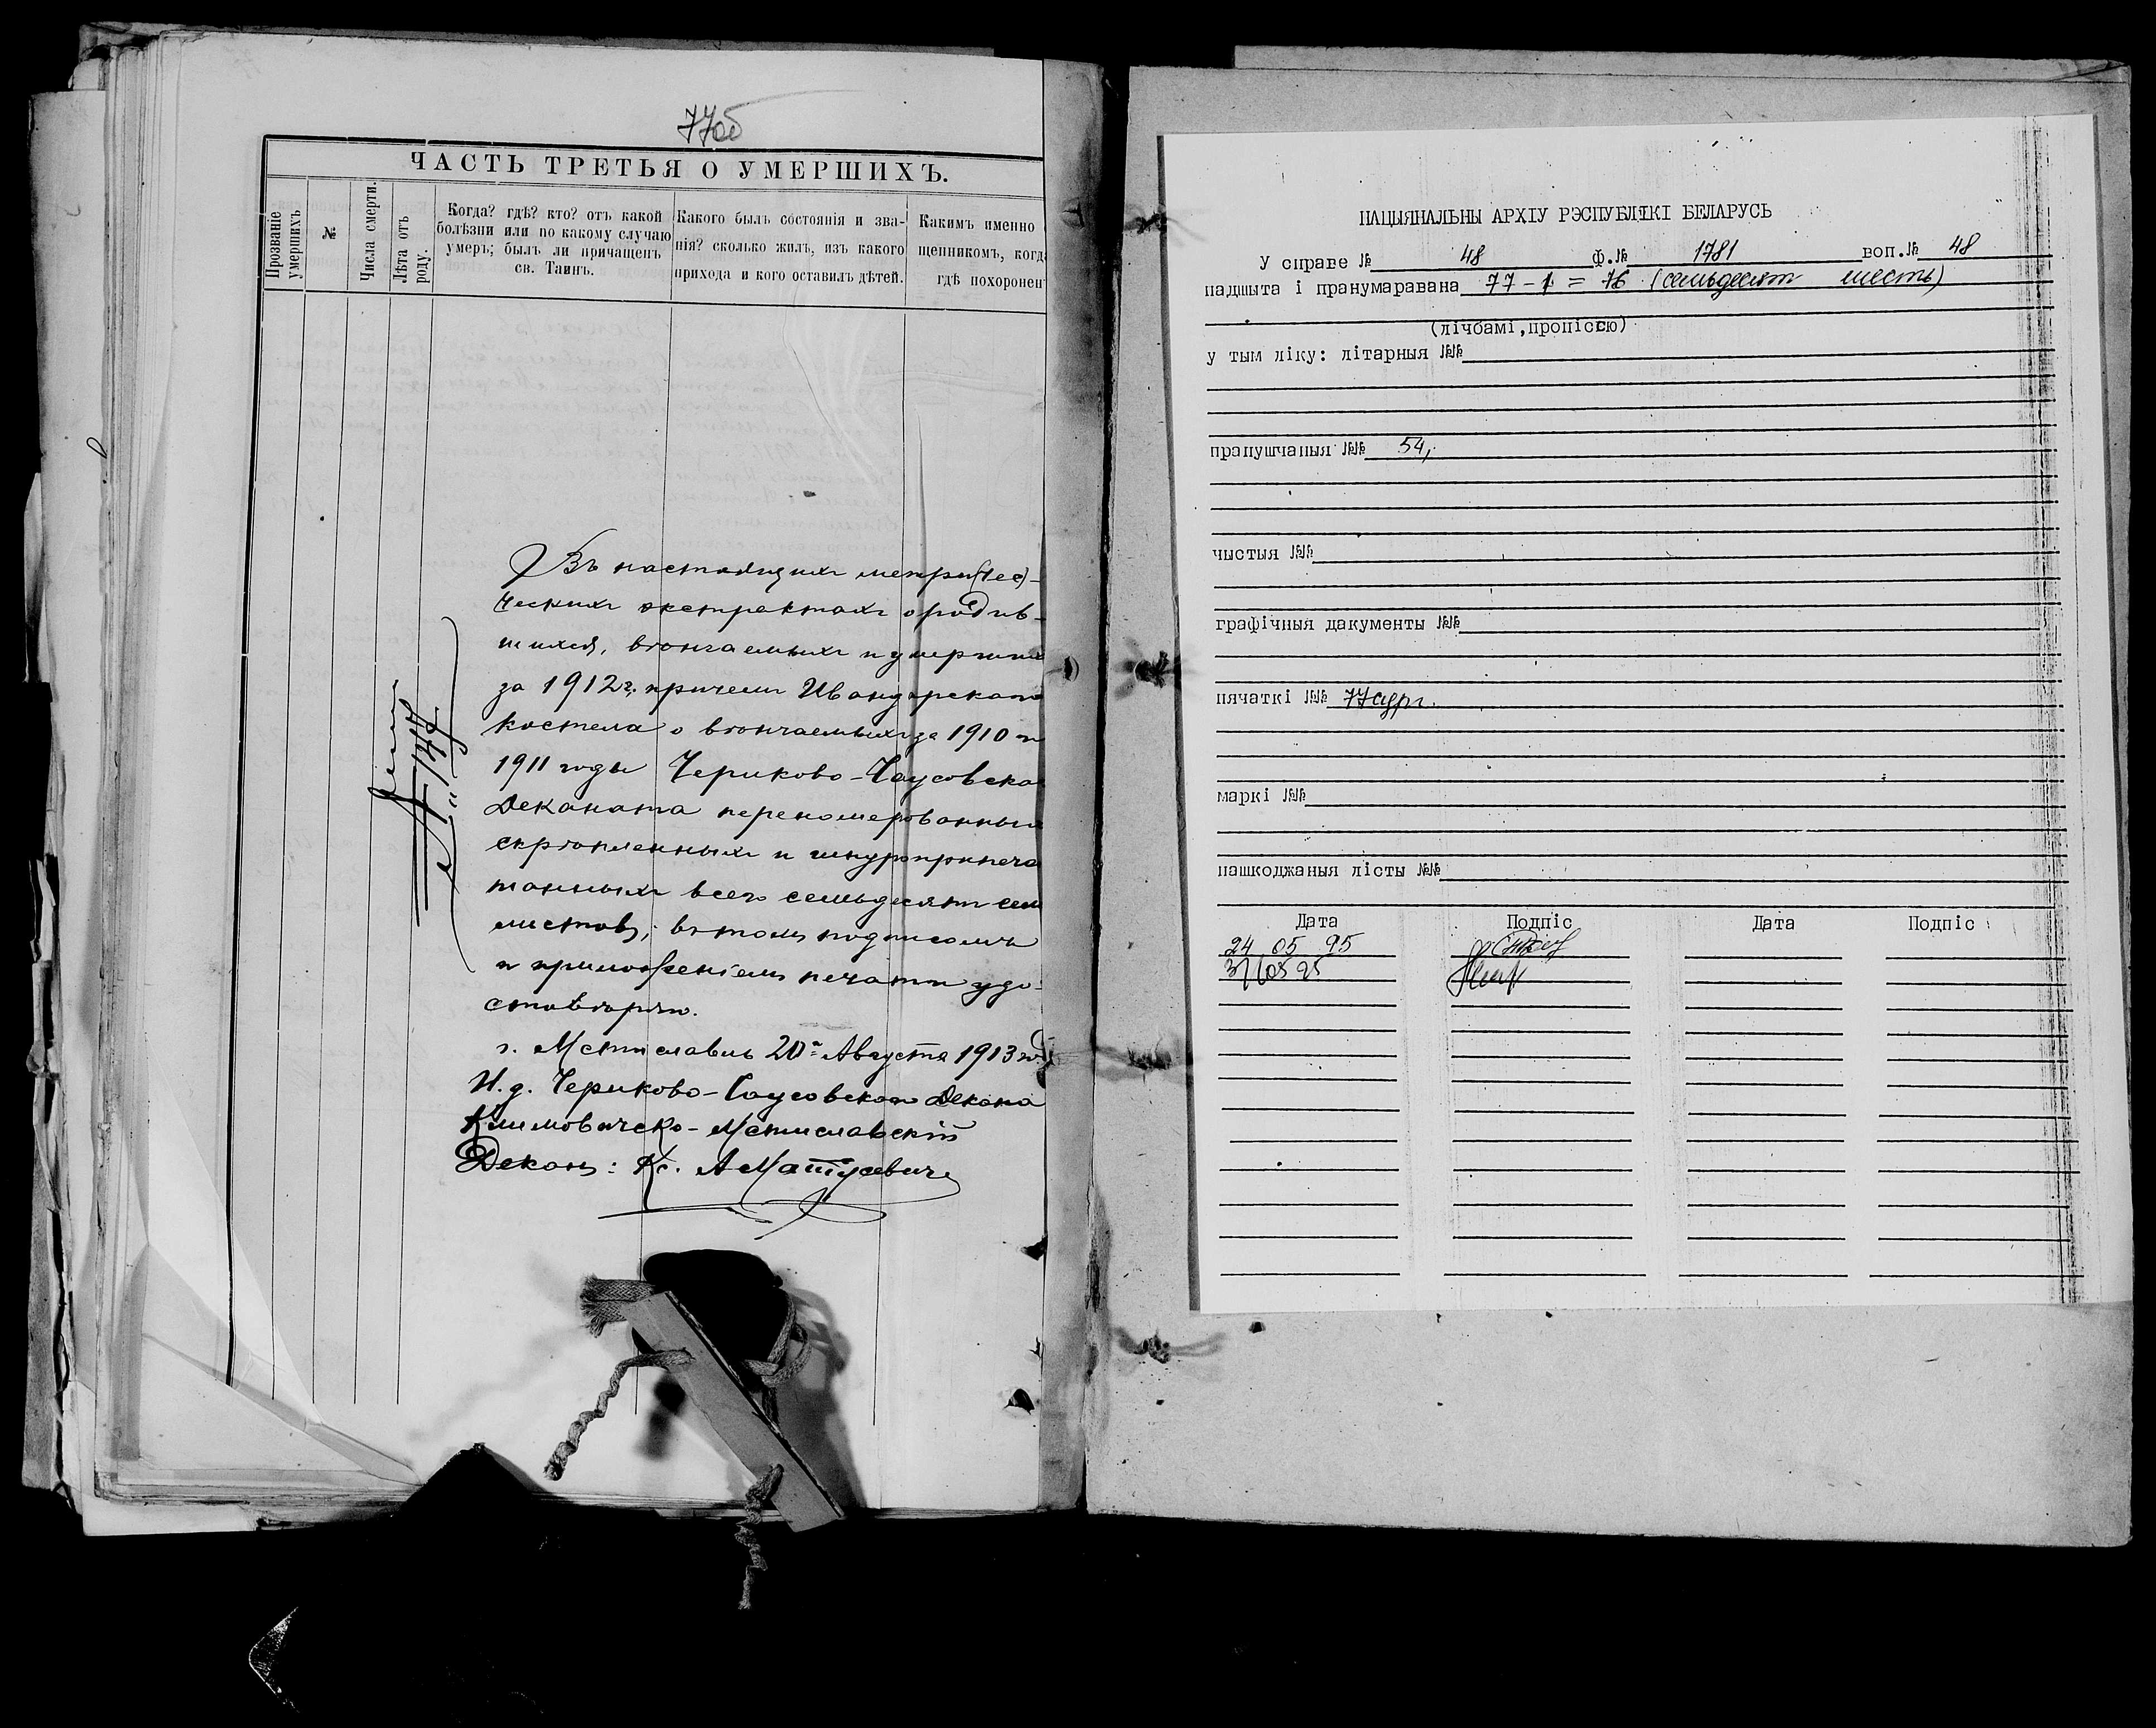 77об
ЧАСТЬ ТРЕТЬЯ О УМЕРШИХЪ.
Прозваніе умершихъ
№
Числа смерти.
Лѣта отъ роду.
Когда? гдѣ? кто? отъ какой
болѣзни или по какому случаю
умеръ; былъ ли причащенъ
св. Таинъ.
Какого былъ состоянія и зва-
нія? сколько жилъ, изъ какого
прихода и кого оставилъ дѣтей.
Какимъ именно
щенникомъ, когда
гдѣ похоронен
Въ настоящихъ метри(чес)-
ческихъ экстрактахъ о родив-
шихся, вѣнчаемыхъ и умерших
за 1912 г. причемъ Ивандарскаго
костела о вѣнчаемыхъ за 1910 и
1911 годы Чериково-Чаусовскаго
Деканата перенумерованныхъ
скрѣпленныхъ и шнуроприпеча
танныхъ всего семьдесятъ сем
листовъ; въ томъ подписомъ
и приложеніемъ печати удо-
стовѣряю.
г. Мстиславль 20 Августа 1913 год
И. д. Чериково-Чаусовскаго Декана
Климовичско-Мстиславскій
Деканъ: Кс. А Матусевичъ
№ 144
НАЦЫЯНАЛЬНЫ АРХІУ РЭСПУБЛІКІ БЕЛАРУСЬ
У справе № 48 ф.№ 1781 воп.№ 48
падшыта і пранумаравана 77 - 1 = 76 (семьдесят шесть)
(лічбамі, пропіссю)
у тым ліку: літарныя №№
прапушчаныя №№ 54,
чыстыя №№
графічныя дакументы №№
пячаткі №№ 77
маркі №№
пашкоджаныя лісты №№
Дата Подпіс Дата Подпіс
24 05 95
31 05 95